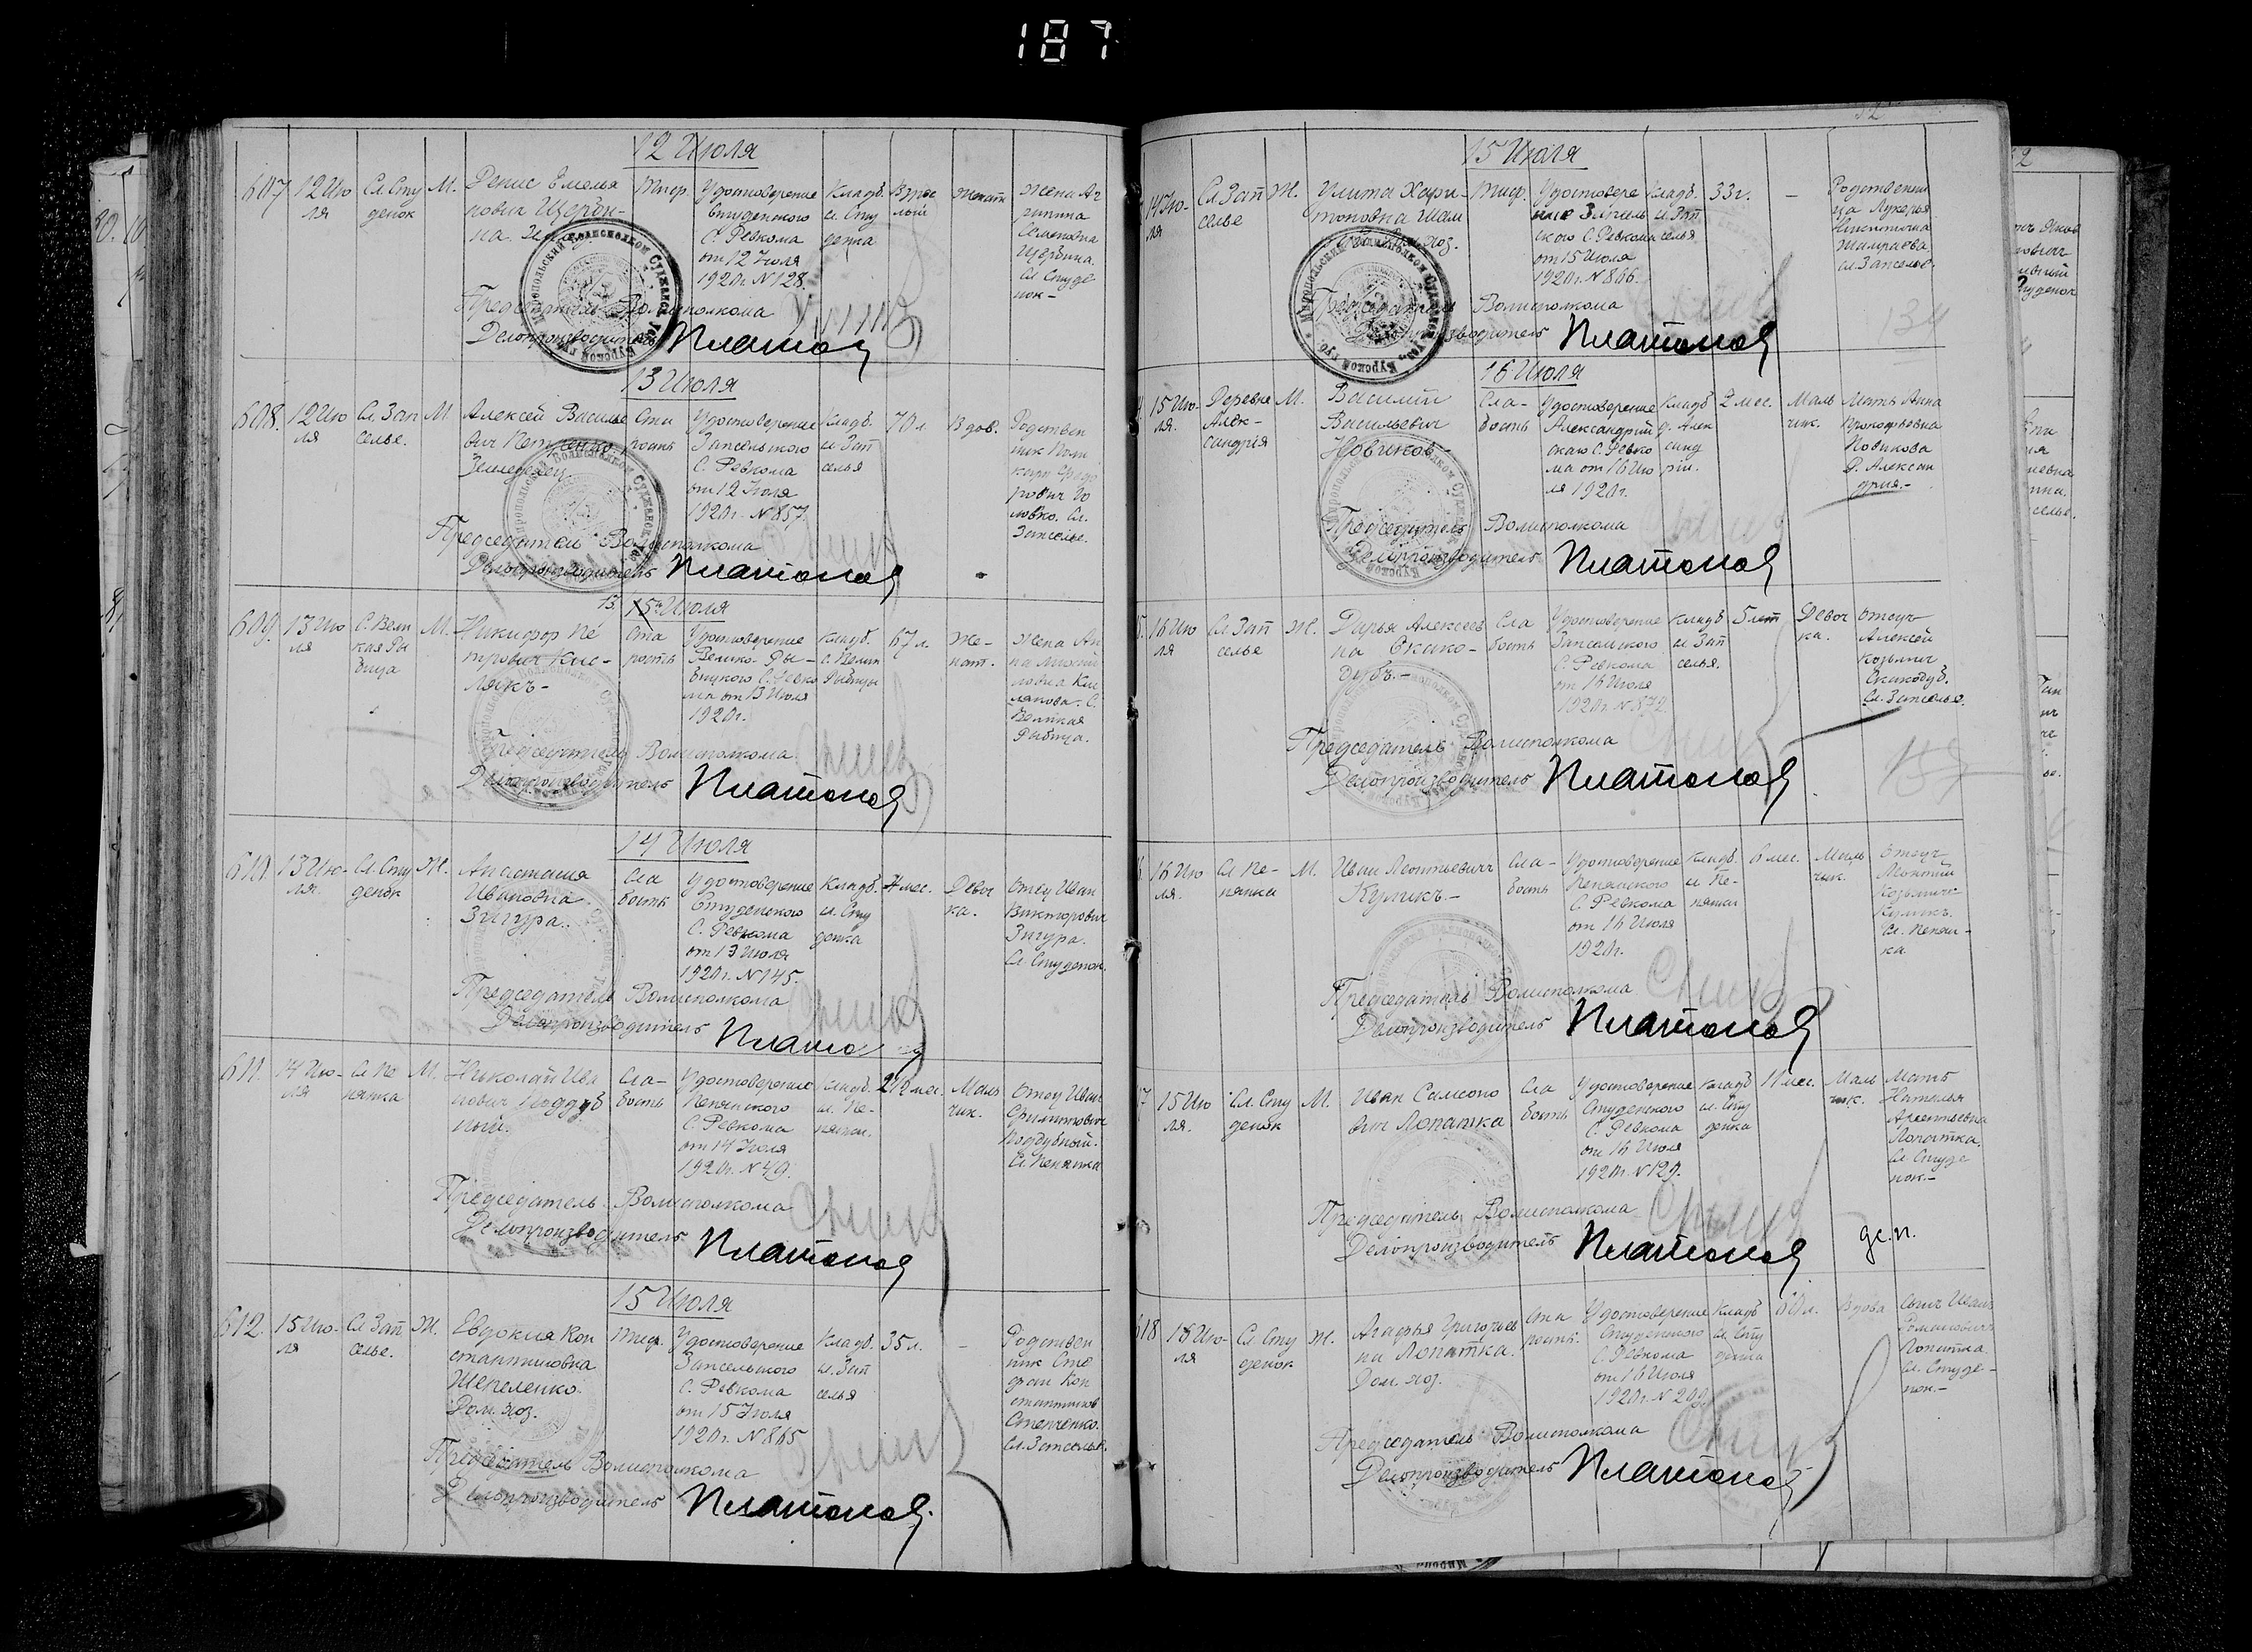 187
12 Июля
607
12 Ию
ля
Сл. Сту
денок
М.
Денис Емелья
нович Щерби-
на.
Тиф.
Удостоверение
Студенского
С. Ревкома
от 12 Июля
1920г. N 128.
Кладб.
сл. Сту
денка
Взрос
лый
Женат
Жена Аг
рипина
Семеновна
Щербина.
Сл. Студе
нок-
Председатель Волисполкома
Делопроизводитель Платонов
13 Июля
608.
12 Ию
ля
Сл. Зап
селье.
М
Алексей Василье
вич Петренко.
Земледелец
Ста
рость
Удостоверение
Запсельского
С. Ревкома
от 12 Июля
1920г. N 857.
Кладб.
сл. Зап
селья
70 л.
Вдов.
Родствен
ник Поли
карп
ловко. Сл.
Запселье.
Председатель Волисполкома
Делопроизводитель Платонов
13. 15 Июля
609.
13 Ию
ля
С. Вели
кая Ры
бица
М.
Никифор Пе
трович Кис-
лякъ-
Ста
рость
Удостоверение
Велико-Ры-
бицкого С. Ревко
ма от 13 Июля
1920г.
Кладб.
с. Велик
Рыбицы
67 л.
Же-
нат.
Жена Ан
на Михай
ловна Кис
лякова. С.
Великая
Рыбица.
Председатель Волисполкома
Делопроизводитель Платонов
14 Июля
610.
13 Ию-
ля.
Сл. Сту
денок
Ж.
Анастасия
Ивановна
Зигура.
Сла
бость
Удостоверение
Студенского
С. Ревкома
от 13 Июля
1920г. N 145.
Кладб.
сл. Сту
денка
4 мес.
Девоч
ка.
Отец Иван
Викторович
Зигура.
Сл. Студенок.
Председатель Волисполкома
Делопроизводитель Платонов
611.
14 Ию-
ля
Сл. Пе
нянка
М.
Николай Ива
нович Поддуб
ный.
Сла-
бость
Удостоверение
Пенянского
С. Ревкома
от 14 Июля
1920г. N 49.
Кладб.
сл. Пе-
нянки.
2 1/2 мес.
Маль
чик.
Отец Иван
Филиппович
Поддубный.
Сл. Пенянка
Председатель Волисполкома
Делопроизводитель Платонов
15 Июля
612.
15 Ию-
ля
Сл. Зап
селье.
Ж.
Евдокия Кон
стантиновна
Шепеленко.
Дом. хоз.
Тиф.
Удостоверение
Запсельского
С. Ревкома
от 15 Июля
1920г. N 865
Кладб.
сл. Зап
селья
35 л.
-
Родствен
ник Сте
фан Кон
стантинов
Степченко.
Сл. Запселье.
Председатель Волисполкома
Делопроизводитель Платонов.
15 Июля
14 Ию-
ля
Сл. Зап
селье
Ж.
Улита Хари-
тоновна Шам
Дом. хоз.
Тиф.
Удостовере
ние Запсель
ского С. Ревкома
от 15 Июля
1920г. N 866.
Кладб.
сл. Зап
селья
33 г.
-
Родственни
ца Лукерья
Никитична
Шамраева
сл. Запселье.
Председатель Волисполкома
Делопроизводитель Платонов
134
16 Июля
15 Ию-
ля.
Деревня
Алек-
сандрия
М.
Василий
Васильевич
Новиков
Сла-
бость
Удостоверение
Александрий
ского С. Ревко
ма от 16 Ию
ля 1920г.
Кладб.
д. Алек
санд
рии.
2 мес.
Маль
чик.
Мать Анна
Прокофьевна
Новикова
Д. Алексан
дрия.-
Председатель Волисполкома
Делопроизводитель Платонов
16 Ию
ля
Сл. Зап
селье
Ж.
Дарья Алексеев
на Скако-
дубъ.-
Сла
бость
Удостоверение
Запсельского
С. Ревкома
от 16 Июля
1920г. N 872.
Кладб
сл. Зап
селья.
5 лет
Девоч
ка.
Отец
Алексей
Козьмич
Скакодуб.
Сл. Запселье.
Председатель Волисполкома
Делопроизводитель Платонов
16 Ию
ля.
Сл. Пе-
нянка
М.
Иван Леонтьевич
Куликъ.-
Сла-
бость
Удостоверение
Пенянского
С. Ревкома
от 16 Июля
1920г.
Кладб.
сл. Пе-
нянки
6 мес.
Маль
чик.
Отец
Леонтий
Козьмич
Куликъ.
Сл. Пенян-
ка
Председатель Волисполкома
Делопроизводитель Платонов
15 Ию
ля.
Сл. Сту
денок
М.
Иван Самсоно
вич Лопатка
Сла
бость
Удостоверение
Студенского
С. Ревкома
от 16 Июля
1920г. N 129.
Кладб
сл. Сту
денка
11 мес.
Маль
чик.
Мать
Наталья
Лопатка.
Сл. Студе
нок.-
Председатель Волисполкома
Делопроизводитель Платонов
618
Ию-
ля
Сл. Сту
денок
Ж.
Агафья Григорьев
на Лопатка.
Дом. хоз.
Ста
рость.
Удостоверение
Студенского
С. Ревкома
от 16 Июля
Кладб
сл. Сту
денка
60 л.
Вдова
Сын Иван
Романович
Лопатка.
Сл. Студе-
нок.-
Председатель Волисполкома
Делопроизводитель Платонов